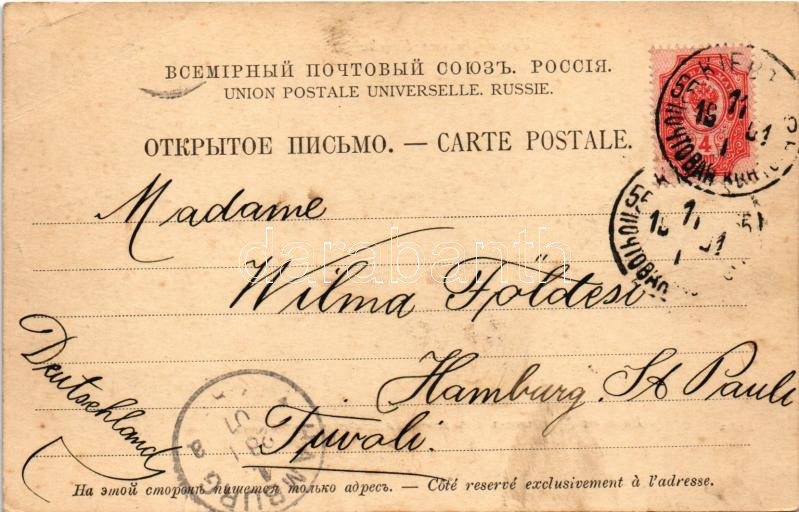 ВСЕМІРНЫЙ ПОЧТОВЫЙ СОЮЗЪ. РОССІЯ.
UNION POSTALE UNIVERSELLE. RUSSIE.
ОТКРЫТОЕ ПИСЬМО. — CARTE POSTALE.
4
КІЕВЪ
ПОЧТОВАЯ КОНТ
Madame
Wilma Földesi
Hamburg. St Pauli
Tivoli.
Deutschland
HAMBURG
darabanth
На этой сторонѣ пишется только адресъ. — Côté reservé exclusivement à l'adresse.